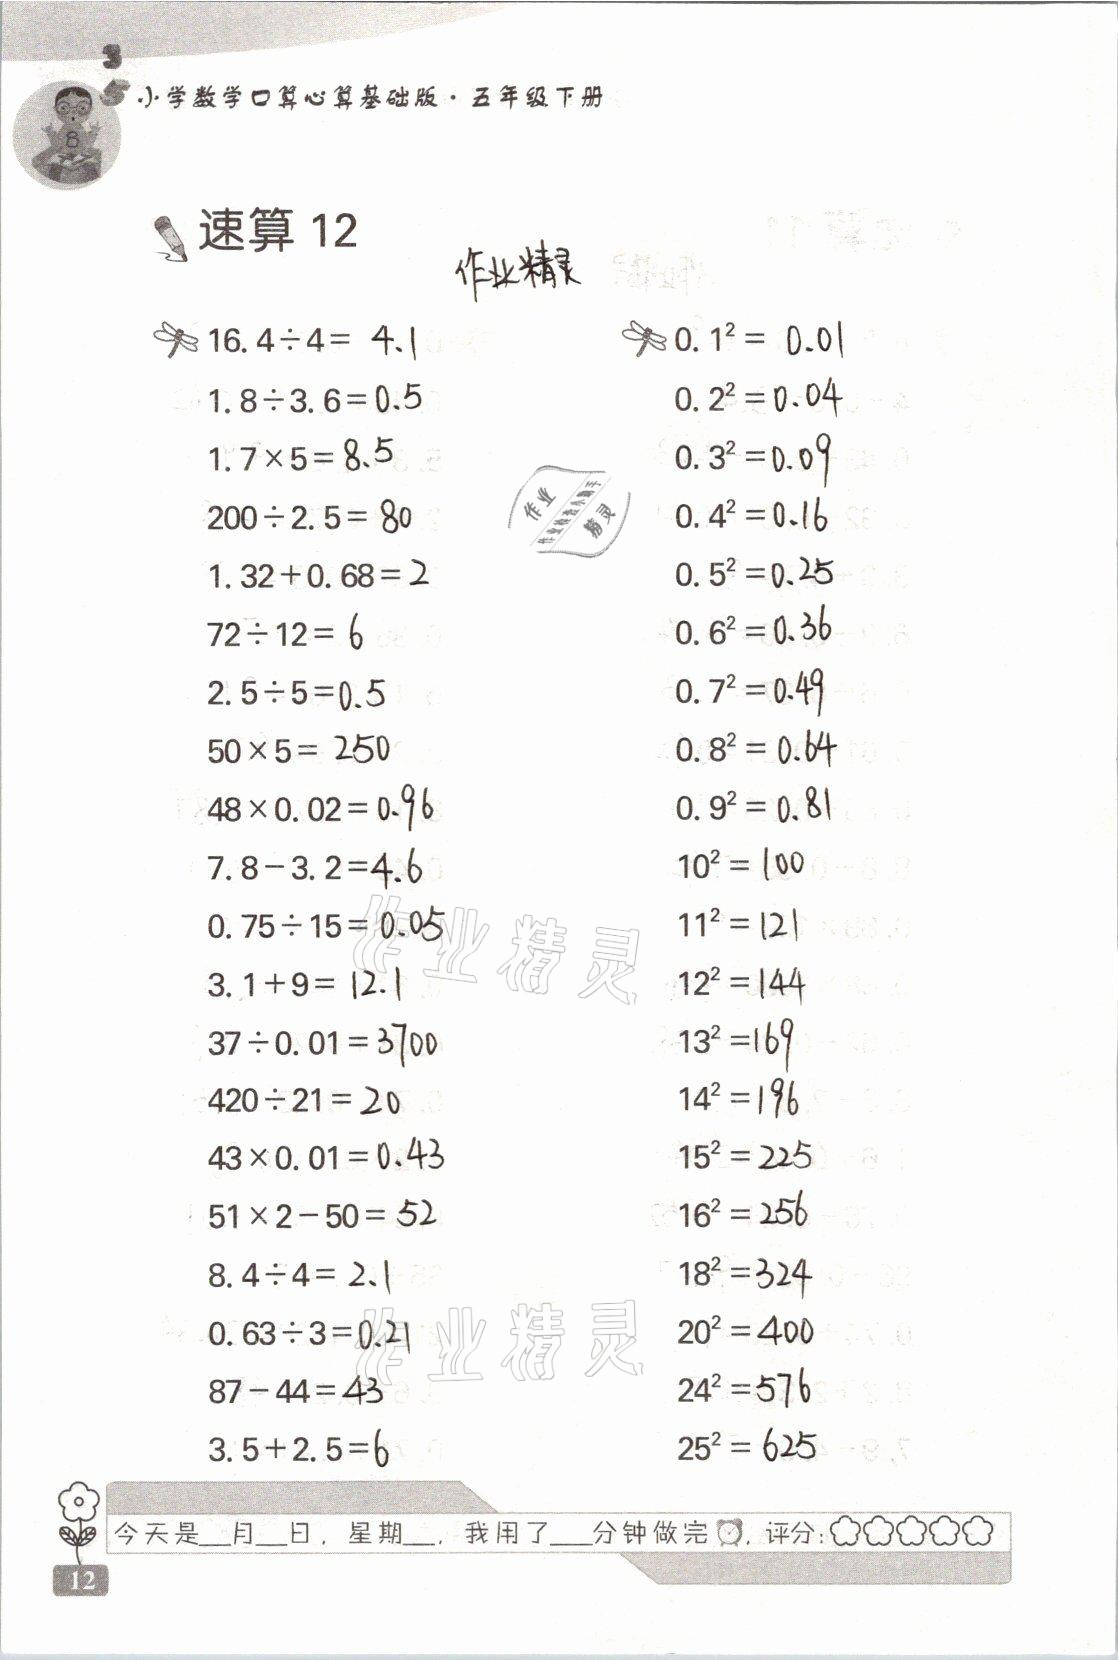 3
5
小学数学口算心算基础版·五年级下册
速算 12
作业精灵
16.4÷4= 4.1
1.8÷3.6=0.5
1.7×5=8.5
200÷2.5=80
1.32+0.68=2
72÷12=6
2.5÷5=0.5
50×5=250
48×0.02=0.96
7.8-3.2=4.6
0.75÷15=0.05
3.1+9=12.1
37÷0.01=3700
420÷21=20
43×0.01=0.43
51×2-50=52
8.4÷4=2.1
0.63÷3=0.21
87-44=43
3.5+2.5=6
0.1²=0.01
0.2²=0.04
0.3²=0.09
0.4²=0.16
0.5²=0.25
0.6²=0.36
0.7²=0.49
0.8²=0.64
0.9²=0.81
10²=100
11²=121
12²=144
13²=169
14²=196
15²=225
16²=256
18²=324
20²=400
24²=576
25²=625
作业
作业检查小助手
精灵
作业精灵
作业精灵
今天是__月__日，星期__，我用了___分钟做完，评分：
12